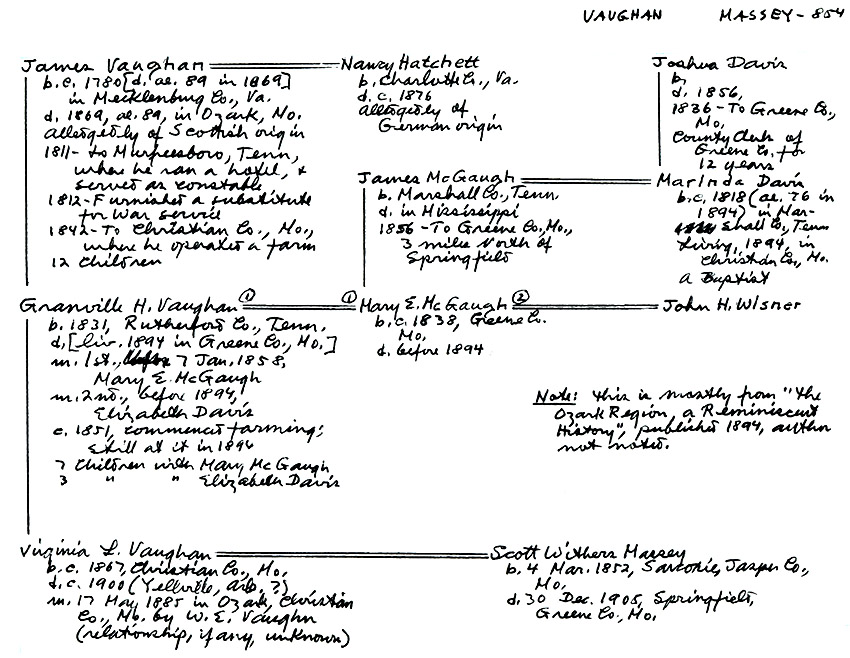 VAUGHAN MASSEY-854
James Vaughan
b.c. 1780 [d. ae. 89 in 1869]
in Mecklenburg Co., Va.
d. 1869, ae. 89, in Ozark, Mo.
allegedly of Scottish origin
1811- to Murfeesboro, Tenn,
where he ran a hotel, &
served as constable
1812- Furnished a substitute
for War service
1842- To Christian Co., Mo.,
where he operated a farm
12 Children
Nancy Hatchett
b. Charlotte Co., Va.
d. c. 1876
allegedly of
German origin
Joshua Davis
b.
d. 1856,
1836- To Greene Co.,
Mo,
County Clerk of
Greene Co. for
12 years
James McGaugh
b. Marshall Co., Tenn.
d. in Mississippi
1856 - To Greene Co., Mo.,
3 miles North of
Springfield
Marinda Davis
b.c. 1818 (ae. 76 in
1894) in Mar-
shall Co., Tenn
Living, 1894, in
Christian Co., Mo.
a Baptist
Granville H. Vaughan ①
b. 1831, Rutherford Co., Tenn.
d. [liv. 1894 in Greene Co., Mo.]
m. 1st., 7 Jan. 1858,
Mary E. McGaugh
m. 2nd., before 1894,
Elizabeth Davis
c. 1851, commenced farming;
still at it in 1894
7 Children with Mary McGaugh
3 " " Elizabeth Davis
① Mary E. McGaugh ②
b.c. 1838, Greene Co.
Mo,
d. before 1894
John H. Wisner
Note: this is mostly from "the
Ozark Region, a Reminiscent
History", published 1894, author
not noted.
Virginia L. Vaughan
b.c. 1867, Christian Co., Mo.
d.c. 1900 (Yellville, Ark. ?)
m. 17 May 1885 in Ozark, Christian
Co., Mo. by W. E. Vaughn
(relationship, if any, unknown)
Scott Withers Massey
b. 4 Mar. 1852, Sarcoxie, Jasper Co.,
Mo,
d. 30 Dec. 1905, Springfield,
Greene Co., Mo.